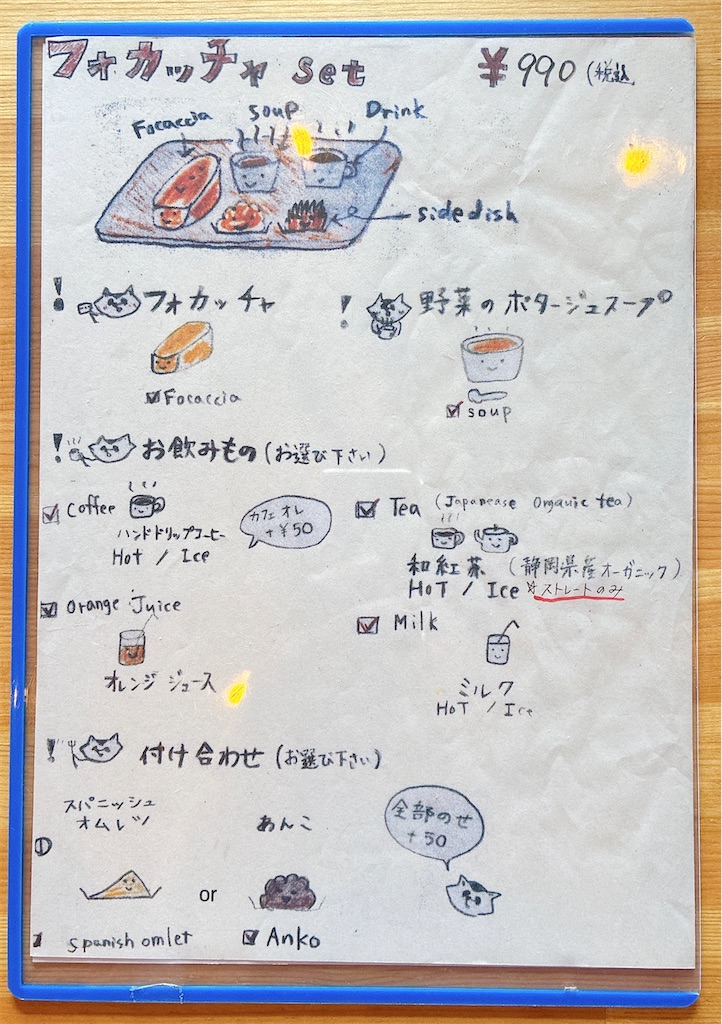 フォカッチャ set ¥990 (税込
Focaccia soup Drink
sidedish
! フォカッチャ
Focaccia
! 野菜のポタージュスープ
soup
! お飲みもの (お選び下さい)
Coffee
ハンドドリップコーヒー
Hot / Ice
カフェオレ
+¥50
Tea (Japanease Organic tea)
和紅茶 (静岡県産オーガニック)
HoT / Ice ※ストレートのみ
Orange Juice
オレンジジュース
Milk
ミルク
HoT / Ice
! 付け合わせ (お選び下さい)
①
スパニッシュ
オムレツ
spanish omlet
or
あんこ
Anko
全部のせ
+50